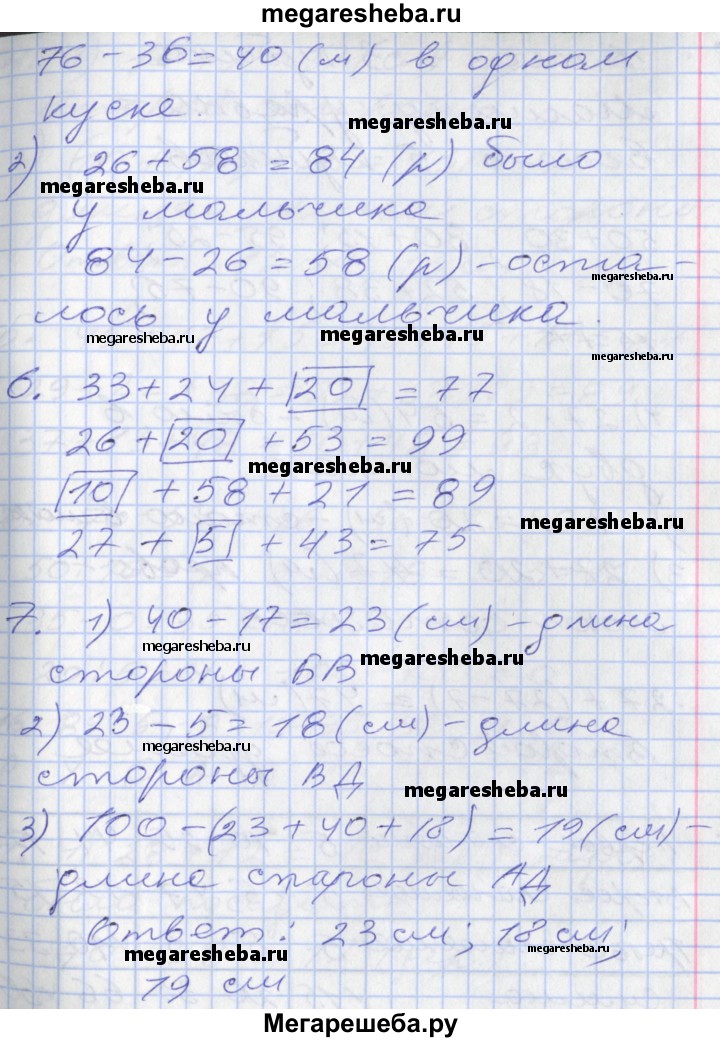 megaresheba.ru
76 - 36 = 40 (м) в одном
куске.
megaresheba.ru
2) 26 + 58 = 84 (р) было
megaresheba.ru
у мальчика
84 - 26 = 58 (р) - оста-
megaresheba.ru
лось у мальчика.
megaresheba.ru
megaresheba.ru
megaresheba.ru
6. 33 + 24 + 20 = 77
26 + 20 + 53 = 99
megaresheba.ru
10 + 58 + 21 = 89
megaresheba.ru
27 + 5 + 43 = 75
7. 1) 40 - 17 = 23 (см) - длина
megaresheba.ru
megaresheba.ru
стороны БВ
2) 23 - 5 = 18 (см) - длина
megaresheba.ru
стороны ВД
megaresheba.ru
3) 100 - (23 + 40 + 18) = 19 (см) -
megaresheba.ru
длина стороны АД
Ответ: 23 см; 18 см;
megaresheba.ru
megaresheba.ru
19 см
Мегарешеба.ру